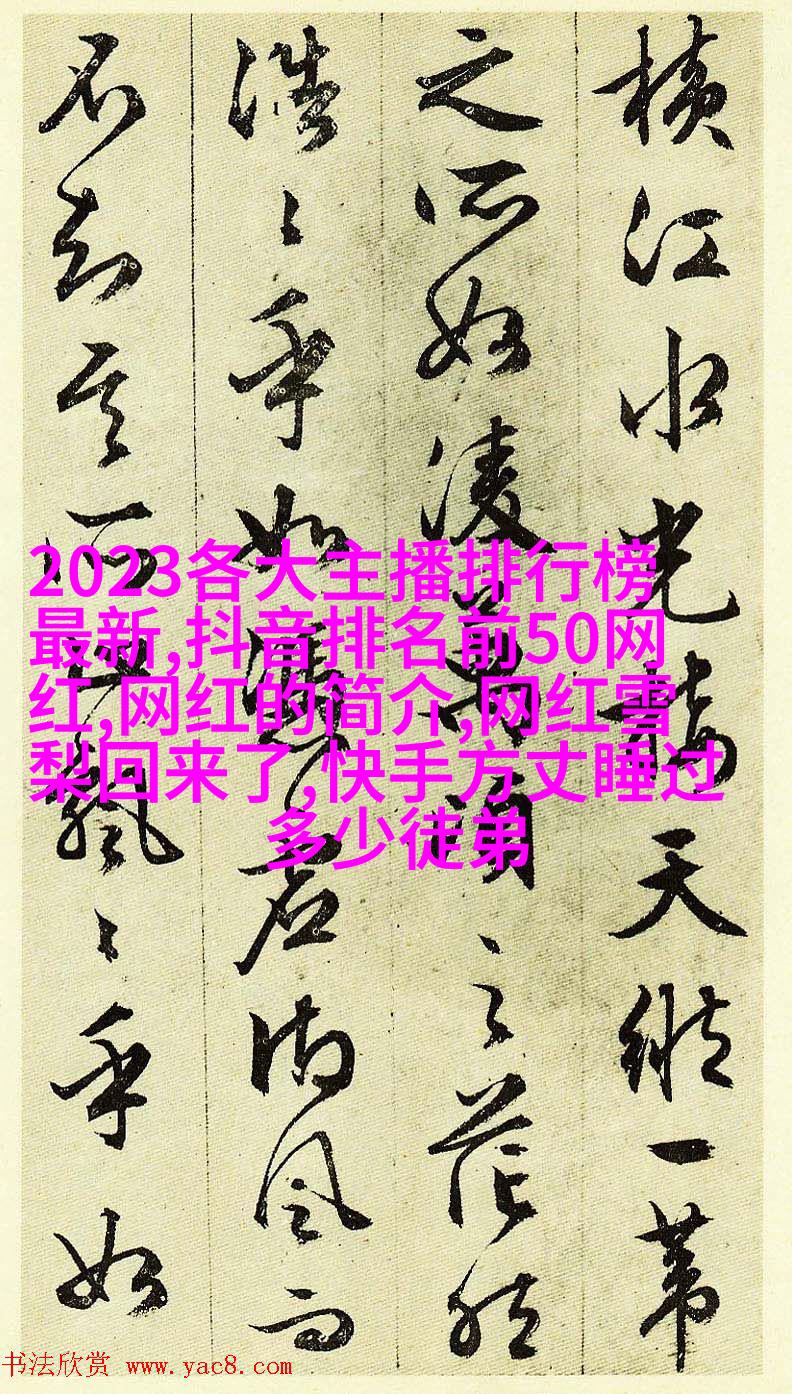 橫江水光接天縱一葦
之所如凌萬頃之茫然
浩〻乎如馮虛御風而
不知其所止飄〻乎如
2023各大主播排行榜
最新,抖音排名前50网
红,网红的简介,网红雪
梨回来了,快手方丈睡过
多少徒弟
书法欣赏 www.yac8.com